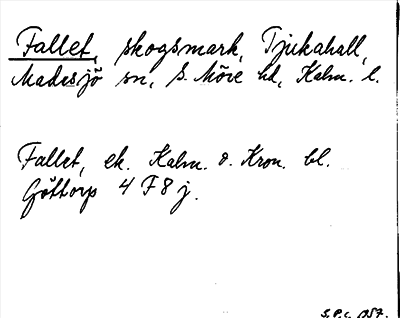 Fallet, skogsmark, Tjukahall,
Madesjö sn, S. Möre hd, Kalm. l.
Fallet, ek. Kalm. o. Kron. bl.
Göttorp 4 F 8 j.